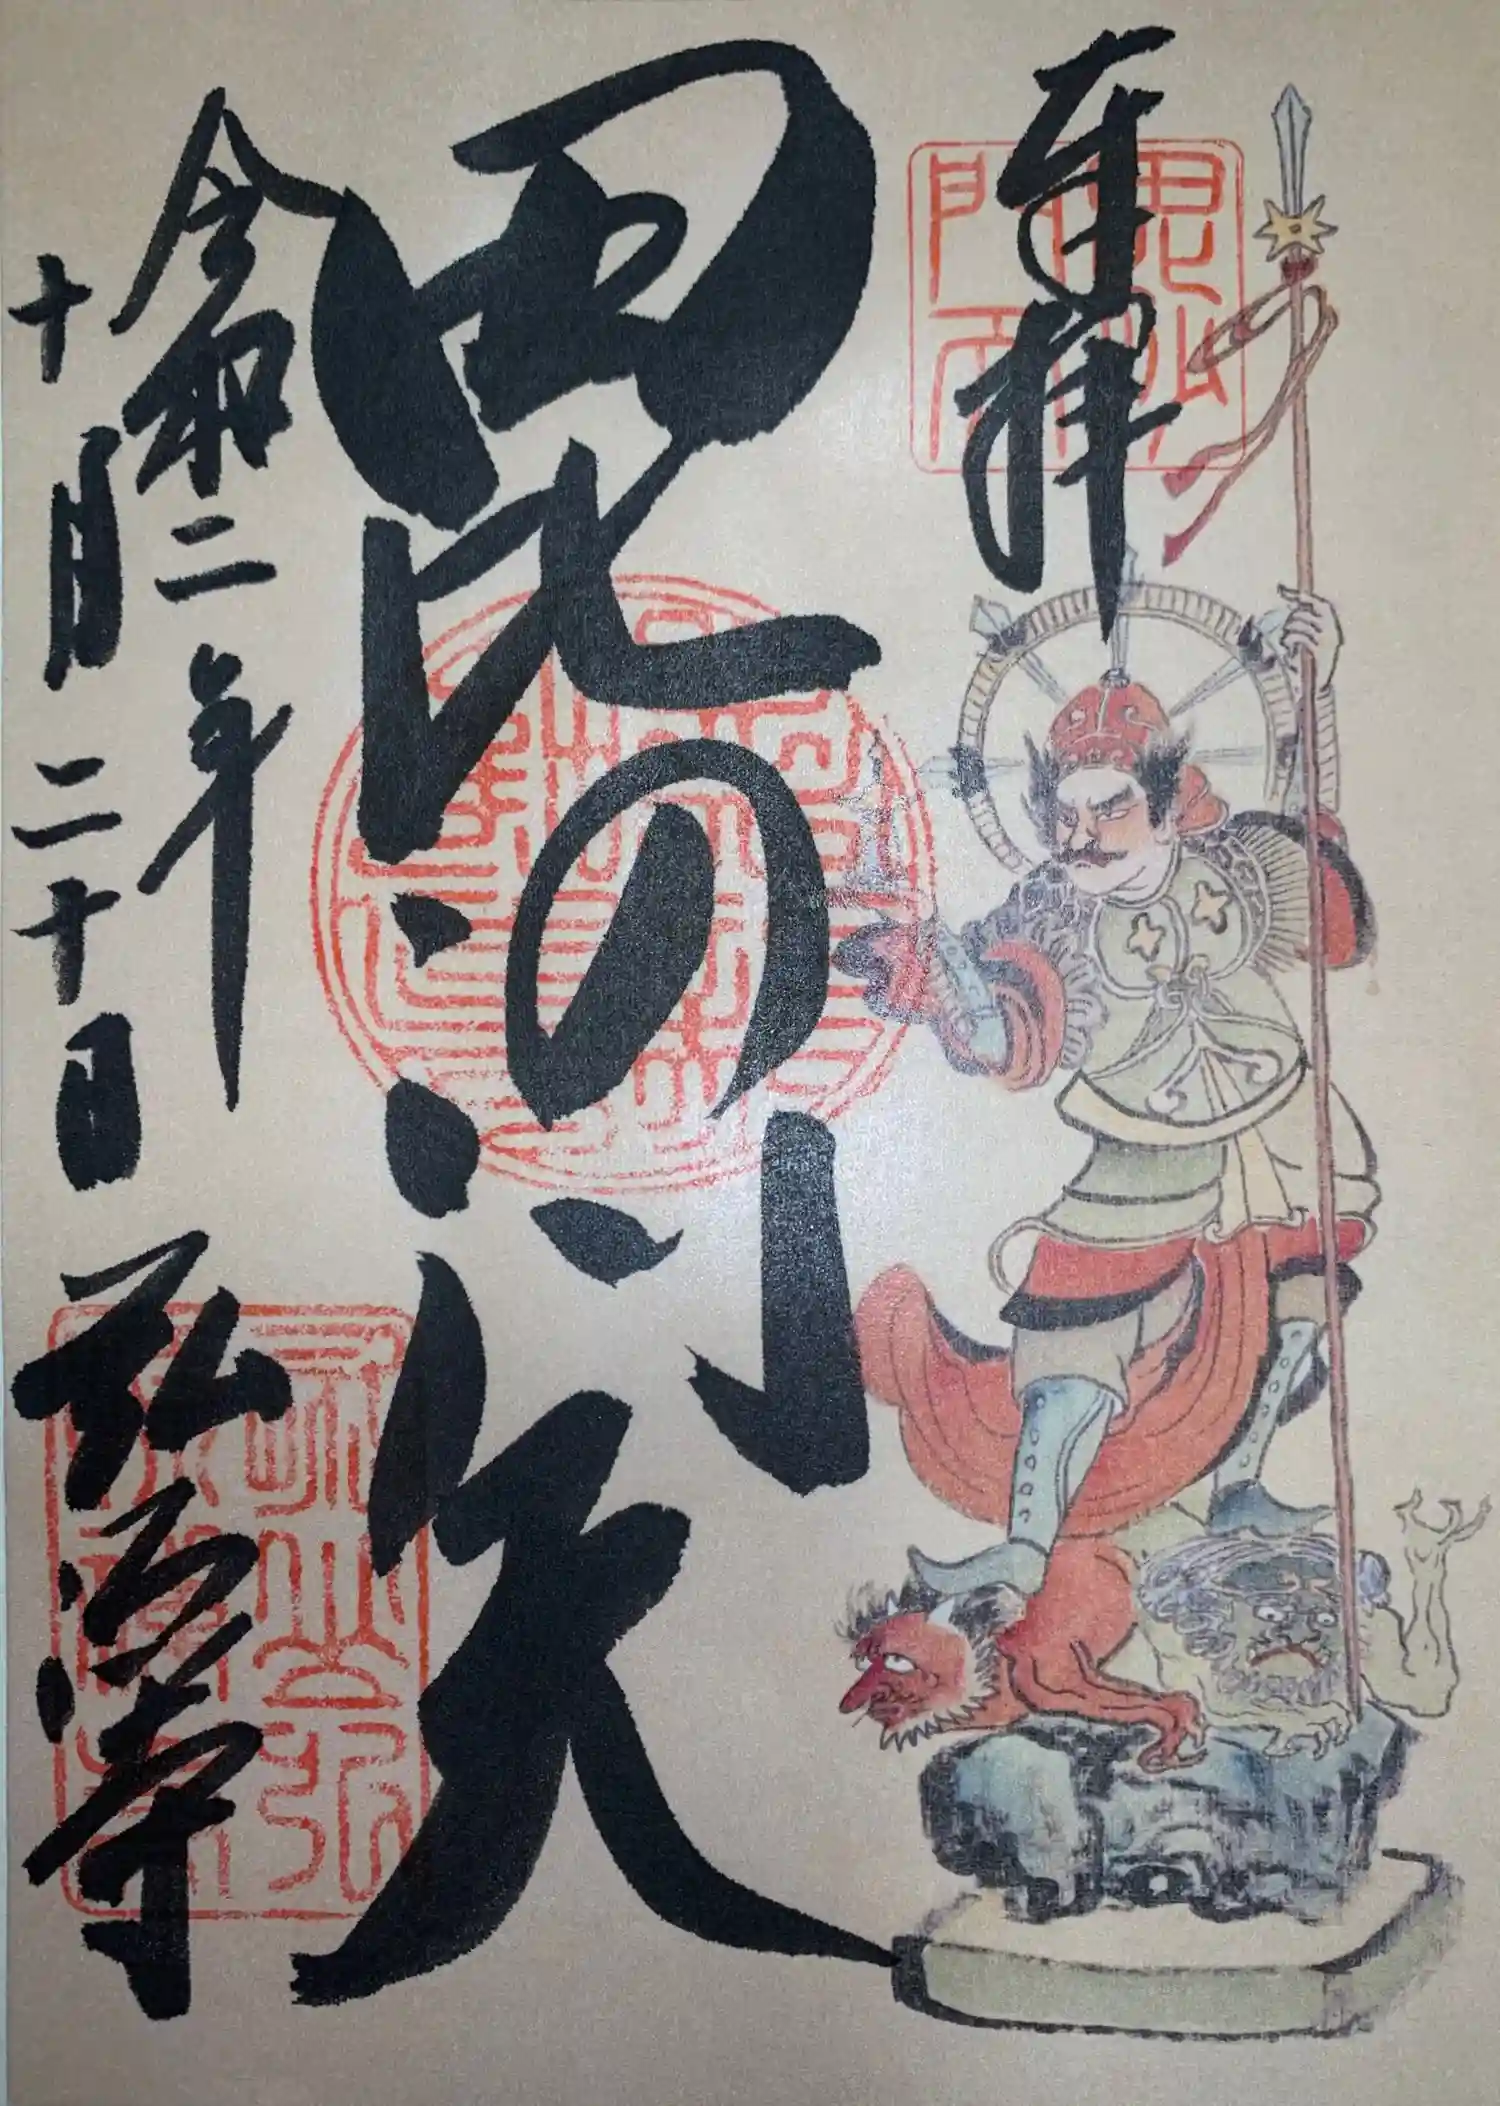 奉拝
毘沙門天
毘沙門天
令和二年
十月二十日
弘法寺